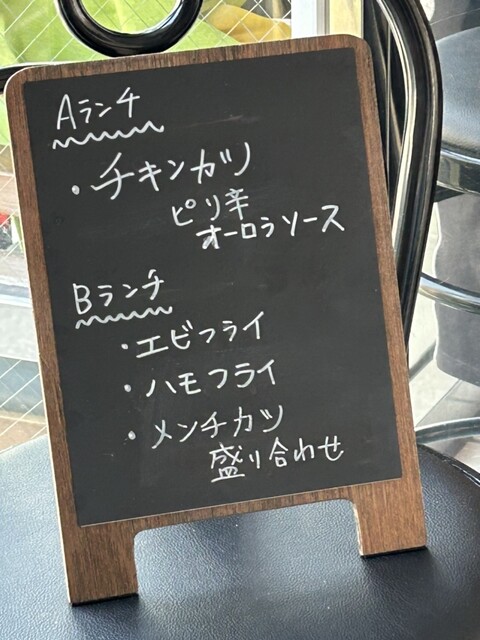 Aランチ
・チキンカツ
ピリ辛
オーロラソース
Bランチ
・エビフライ
・ハモフライ
・メンチカツ
盛り合わせ